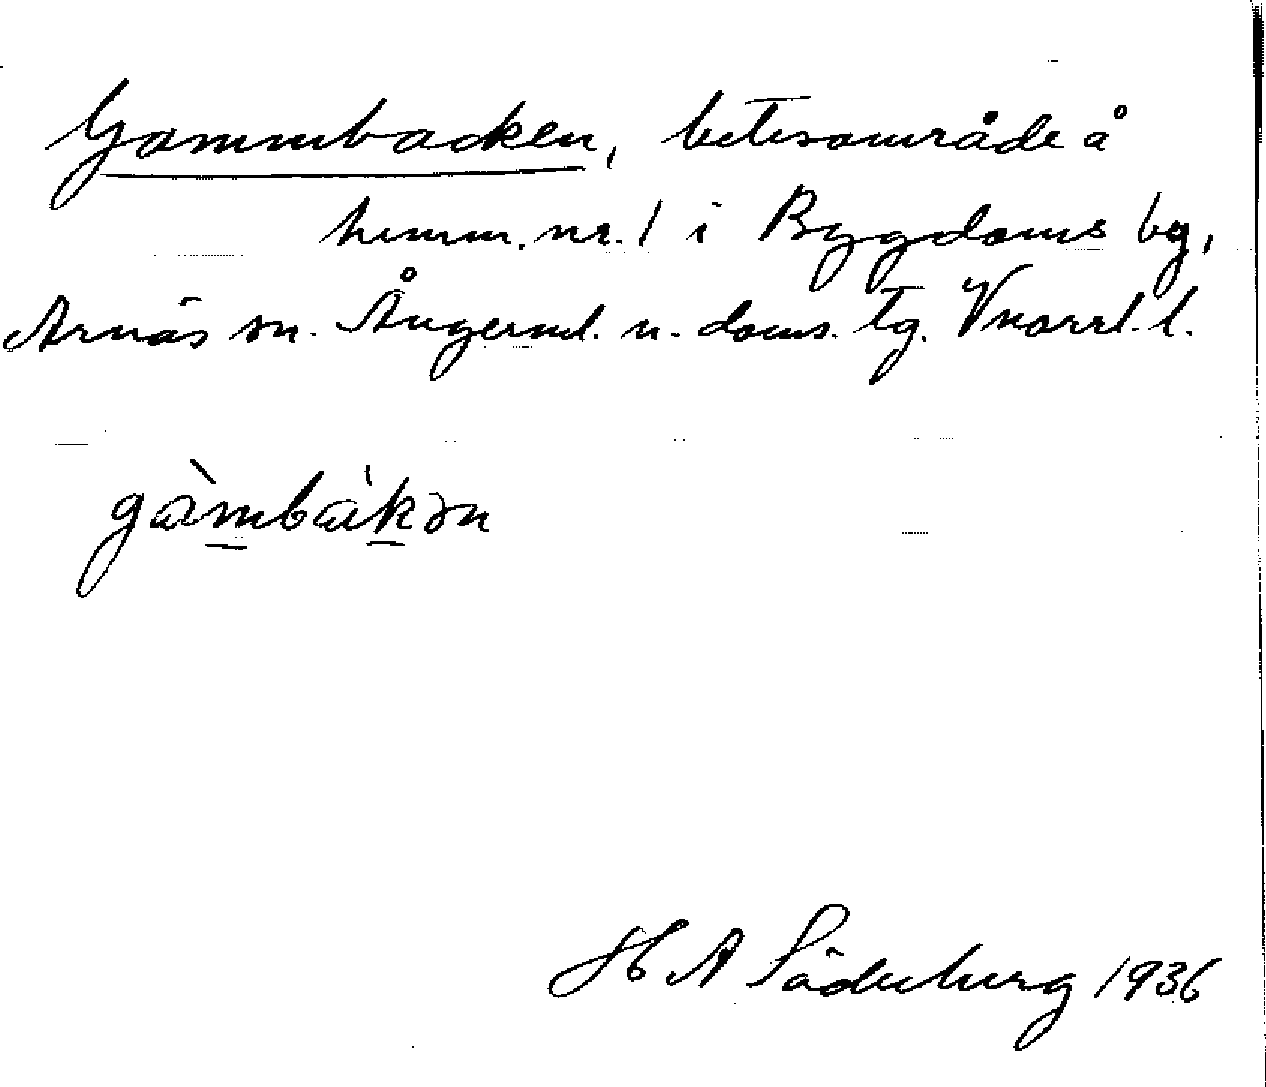 Gammbacken, betesområde å
hemm. nr. 1 i Bygdoms bg,
Arnäs sn. Ångerml. n. doms. tg. Vnorrl. l.
gàmbàkən
H A Söderberg 1936